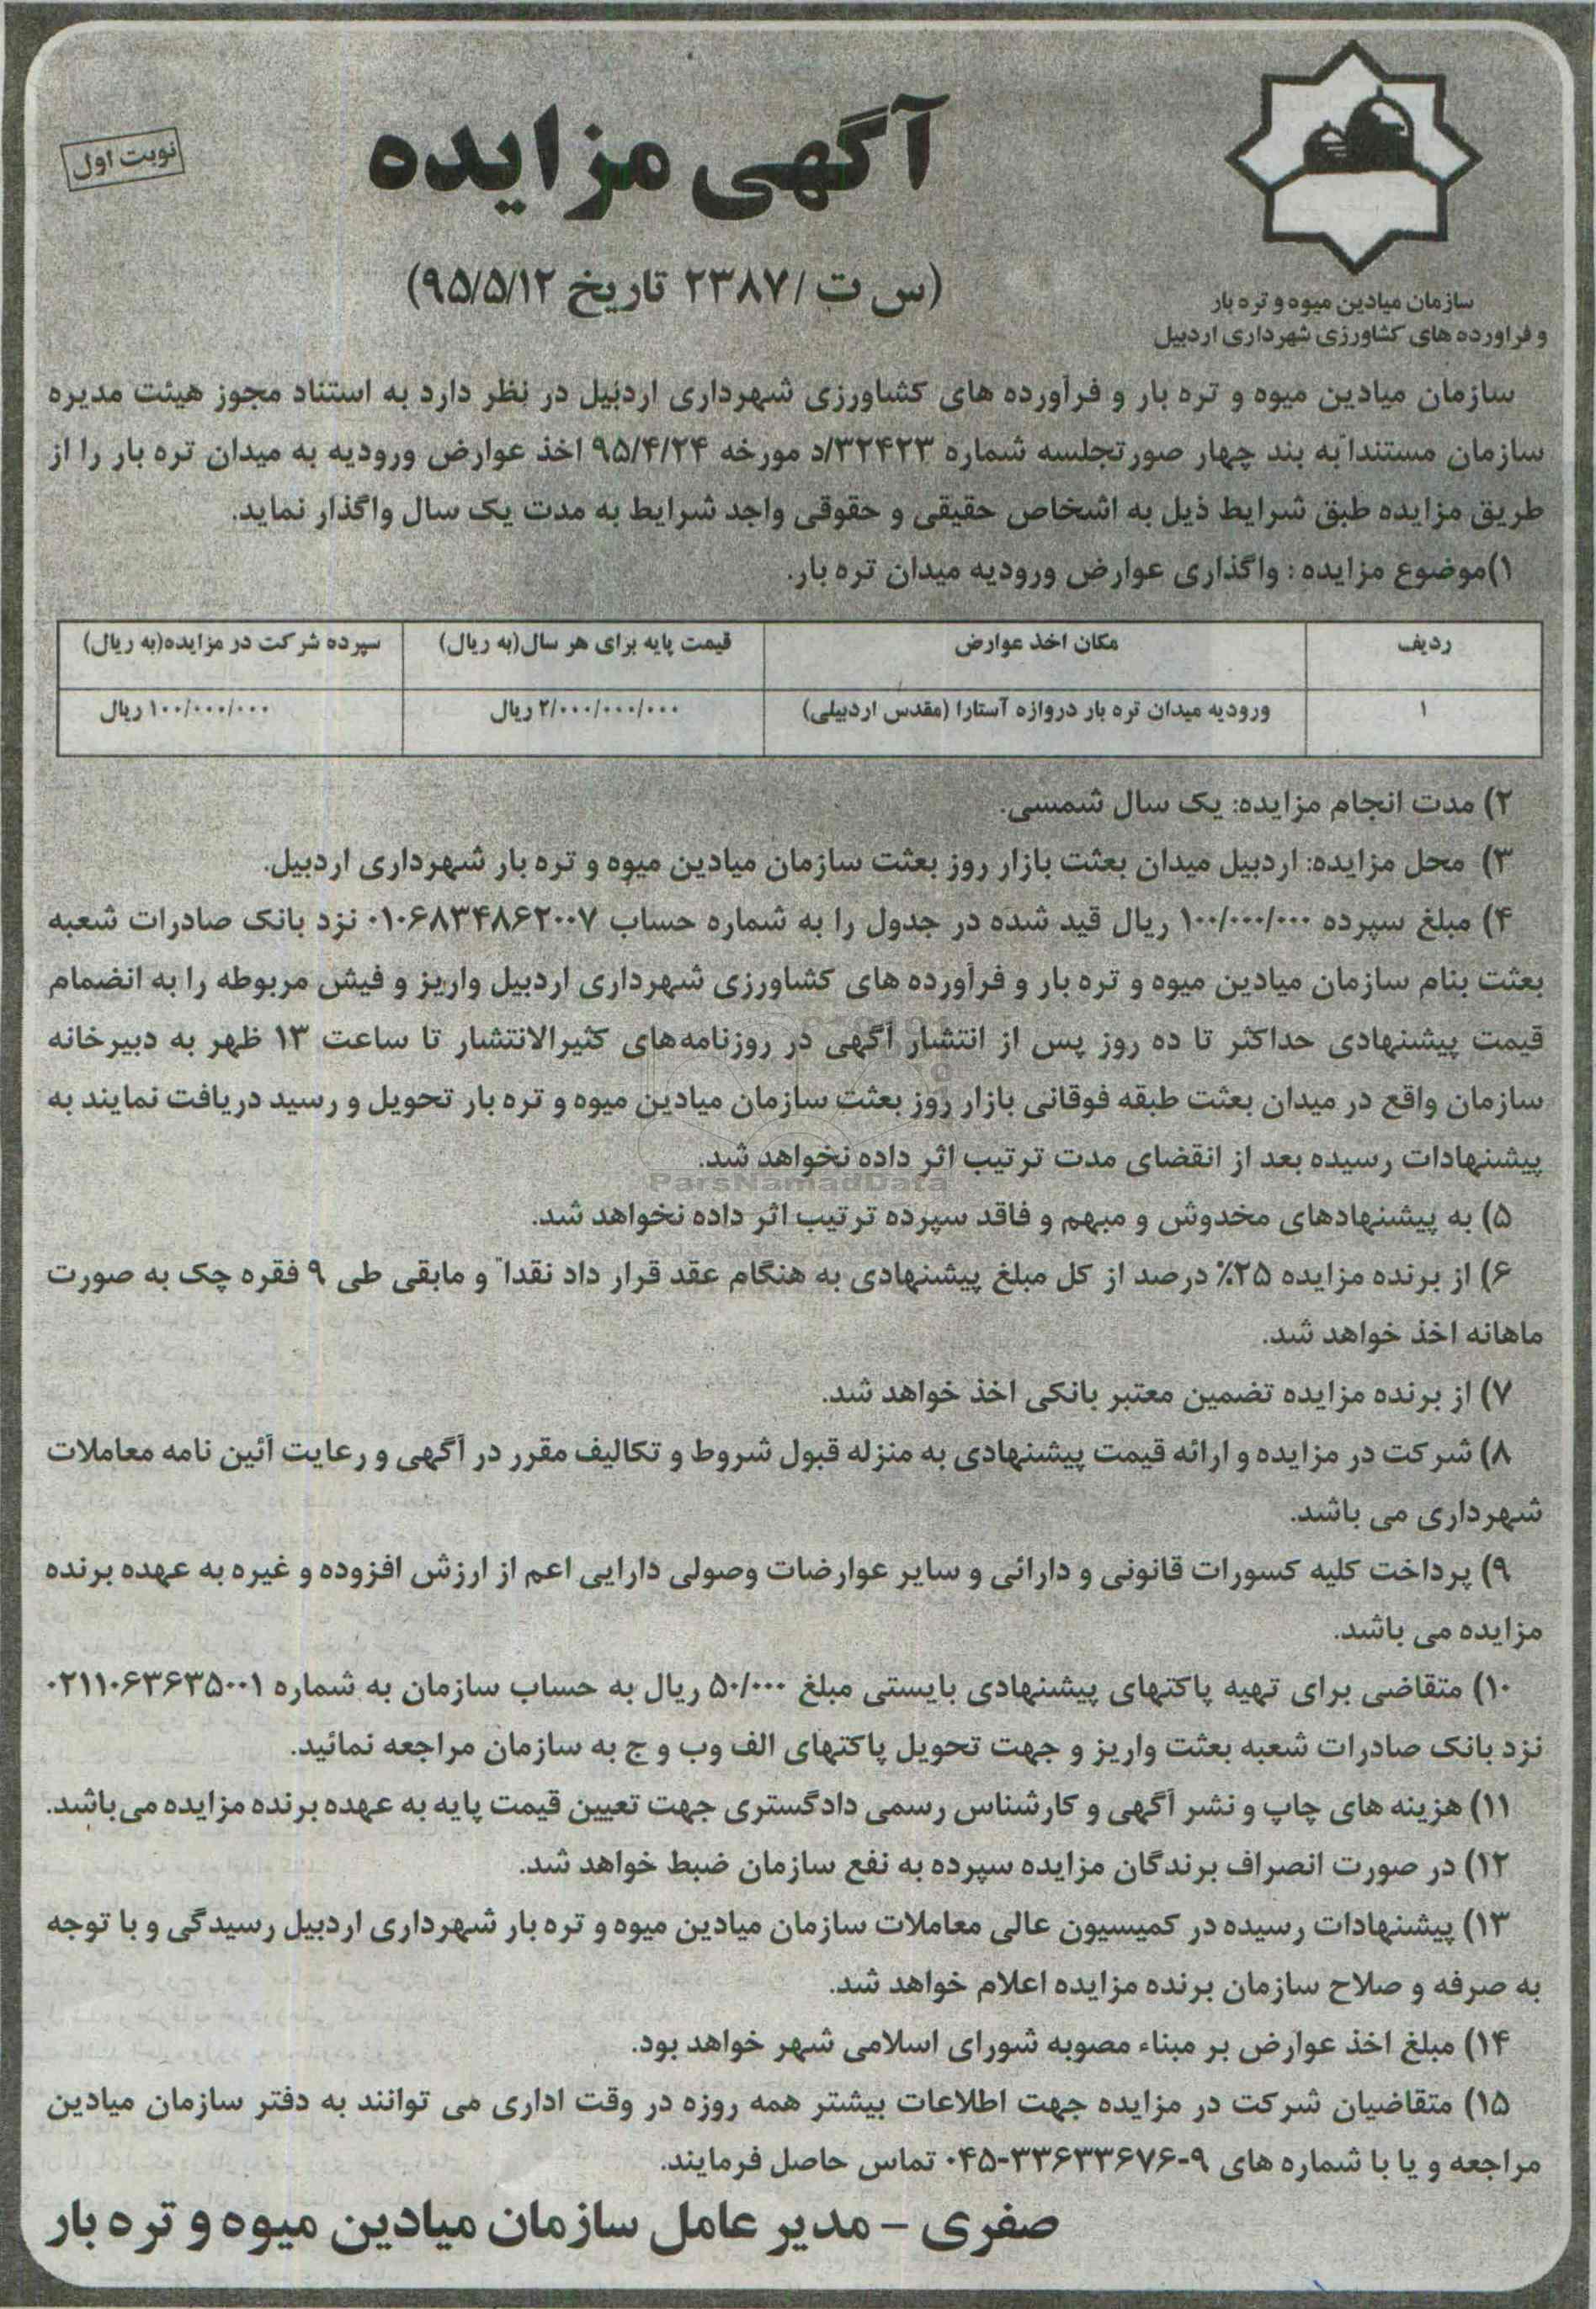 نوبت اول
آگهی مزایده
(س ت / ۲۳۸۷ تاریخ ۹۵/۵/۱۲)
سازمان میادین میوه و تره بار
و فراورده های کشاورزی شهرداری اردبیل
سازمان میادین میوه و تره بار و فرآورده های کشاورزی شهرداری اردبیل در نظر دارد به استناد مجوز هیئت مدیره
سازمان مستنداً به بند چهار صورتجلسه شماره ۳۲۴۲۳/د مورخه ۹۵/۴/۲۴ اخذ عوارض ورودیه به میدان تره بار را از
طریق مزایده طبق شرایط ذیل به اشخاص حقیقی و حقوقی واجد شرایط به مدت یک سال واگذار نماید.
۱)موضوع مزایده : واگذاری عوارض ورودیه میدان تره بار.
ردیف مکان اخذ عوارض قیمت پایه برای هر سال(به ریال) سپرده شرکت در مزایده(به ریال)
۱ ورودیه میدان تره بار دروازه آستارا (مقدس اردبیلی) ۲/۰۰۰/۰۰۰/۰۰۰ ریال ۱۰۰/۰۰۰/۰۰۰ ریال
۲) مدت انجام مزایده: یک سال شمسی.
۳) محل مزایده: اردبیل میدان بعثت بازار روز بعثت سازمان میادین میوه و تره بار شهرداری اردبیل.
۴) مبلغ سپرده ۱۰۰/۰۰۰/۰۰۰ ریال قید شده در جدول را به شماره حساب ۰۱۰۶۸۳۴۸۶۲۰۰۷ نزد بانک صادرات شعبه
بعثت بنام سازمان میادین میوه و تره بار و فرآورده های کشاورزی شهرداری اردبیل واریز و فیش مربوطه را به انضمام
قیمت پیشنهادی حداکثر تا ده روز پس از انتشار آگهی در روزنامه‌های کثیرالانتشار تا ساعت ۱۳ ظهر به دبیرخانه
سازمان واقع در میدان بعثت طبقه فوقانی بازار روز بعثت سازمان میادین میوه و تره بار تحویل و رسید دریافت نمایند به
پیشنهادات رسیده بعد از انقضای مدت ترتیب اثر داده نخواهد شد.
ParsNamadData
۵) به پیشنهادهای مخدوش و مبهم و فاقد سپرده ترتیب اثر داده نخواهد شد.
۶) از برنده مزایده ۲۵٪ درصد از کل مبلغ پیشنهادی به هنگام عقد قرار داد نقداً و مابقی طی ۹ فقره چک به صورت
ماهانه اخذ خواهد شد.
۷) از برنده مزایده تضمین معتبر بانکی اخذ خواهد شد.
۸) شرکت در مزایده و ارائه قیمت پیشنهادی به منزله قبول شروط و تکالیف مقرر در آگهی و رعایت آئین نامه معاملات
شهرداری می باشد.
۹) پرداخت کلیه کسورات قانونی و دارائی و سایر عوارضات وصولی دارایی اعم از ارزش افزوده و غیره به عهده برنده
مزایده می باشد.
۱۰) متقاضی برای تهیه پاکتهای پیشنهادی بایستی مبلغ ۵۰/۰۰۰ ریال به حساب سازمان به شماره ۰۲۱۱۰۶۳۶۳۵۰۰۱
نزد بانک صادرات شعبه بعثت واریز و جهت تحویل پاکتهای الف وب و ج به سازمان مراجعه نمائید.
۱۱) هزینه های چاپ و نشر آگهی و کارشناس رسمی دادگستری جهت تعیین قیمت پایه به عهده برنده مزایده می‌باشد.
۱۲) در صورت انصراف برندگان مزایده سپرده به نفع سازمان ضبط خواهد شد.
۱۳) پیشنهادات رسیده در کمیسیون عالی معاملات سازمان میادین میوه و تره بار شهرداری اردبیل رسیدگی و با توجه
به صرفه و صلاح سازمان برنده مزایده اعلام خواهد شد.
۱۴) مبلغ اخذ عوارض بر مبناء مصوبه شورای اسلامی شهر خواهد بود.
۱۵) متقاضیان شرکت در مزایده جهت اطلاعات بیشتر همه روزه در وقت اداری می توانند به دفتر سازمان میادین
مراجعه و یا با شماره های ۹-۳۳۶۳۳۶۷۶-۰۴۵ تماس حاصل فرمایند.
صفری - مدیر عامل سازمان میادین میوه و تره بار